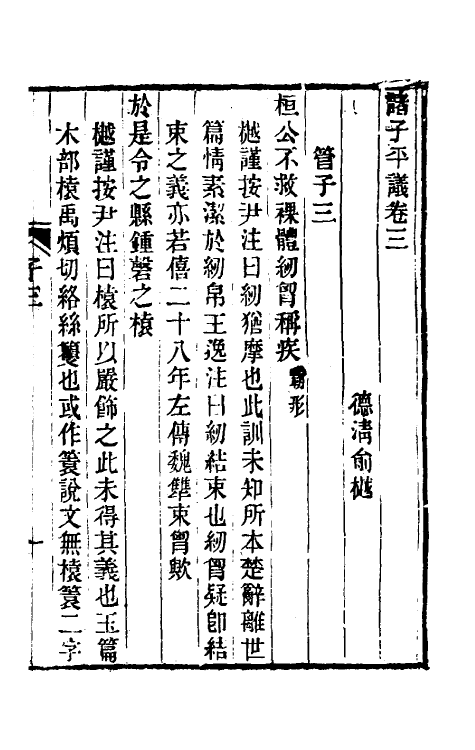 諸子平議卷三
德清俞樾
管子三
桓公不救裸體紉胷稱疾霸形
樾謹按尹注曰紉猶摩也此訓未知所本楚辭離世
篇情素潔於紉帛王逸注曰紉結束也紉胷疑卽結
束之義亦若僖二十八年左傳魏犨束胷歟
於是令之縣鍾磬之榬
樾謹按尹注曰榬所以嚴飾之此未得其義也玉篇
木部榬禹煩切絡絲籰也或作簑說文無榬簑二字
子三
一